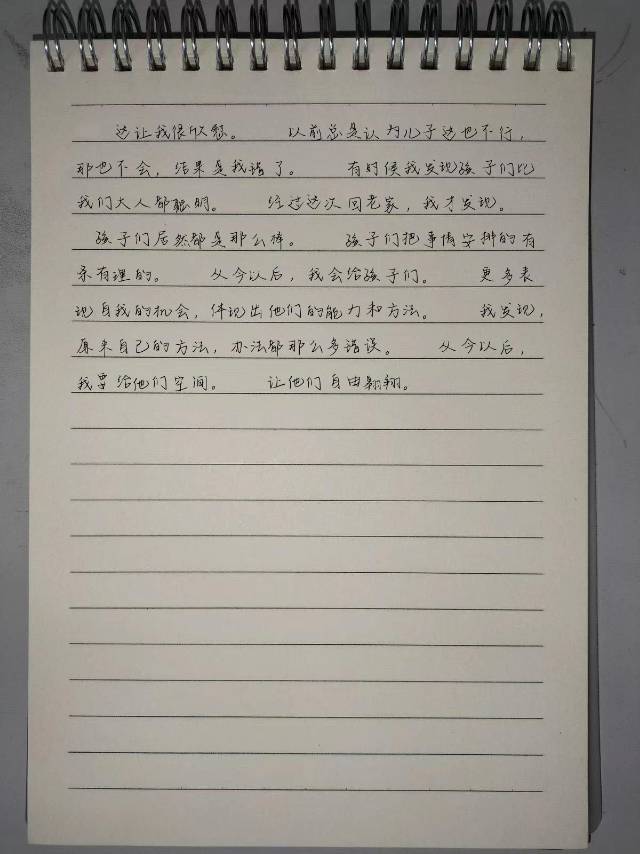 这让我很欣慰。 以前总是认为儿子这也不行，
那也不会，结果是我错了。 有时候我发现孩子们比
我们大人都聪明。 经过这次回老家，我才发现。
孩子们居然都是那么棒。 孩子们把事情安排的有
条有理的。 从今以后，我会给孩子们。 更多表
现自我的机会，体现出他们的能力和方法。 我发现，
原来自己的方法，办法都那么多错误。 从今以后，
我要给他们空间。 让他们自由翱翔。